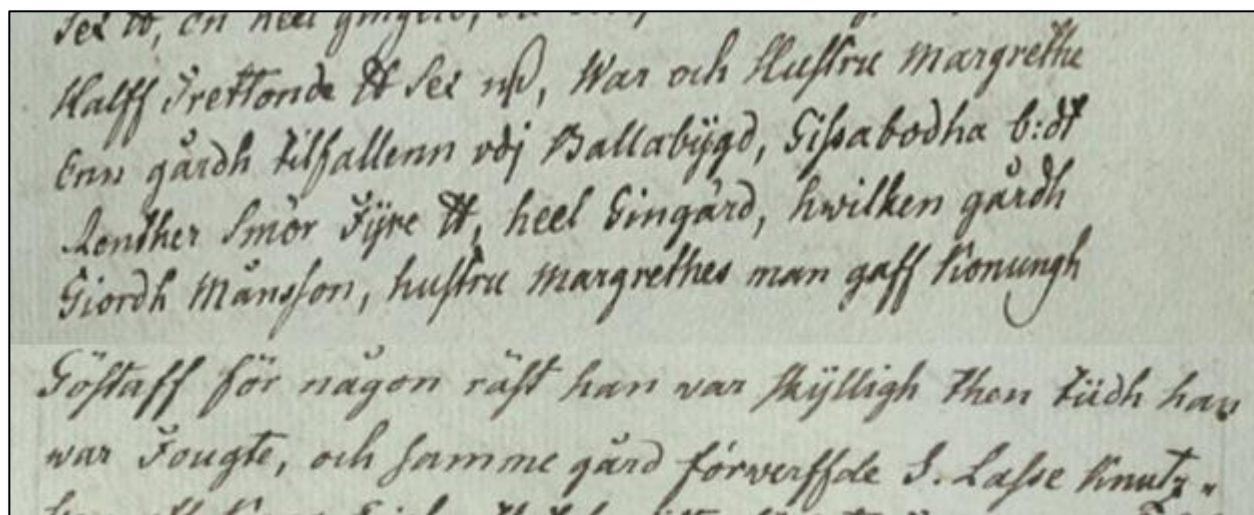 heel
Halff Trettonde ℔ Sex nß, War och Hustru Margrethe
Enn gårdh tilfallenn vdj Ballabÿgd, Gissabodha b:dt
Renther Smör Fÿre ℔, heel Gingård, hwilken gårdh
Giordh Månsson, hustru Margrethes man gaff Konungh
Göstaff för någon räst han var skÿlligh then tiidh han
war Fougte, och samme gård förwerffde S. Lasse Knutz=